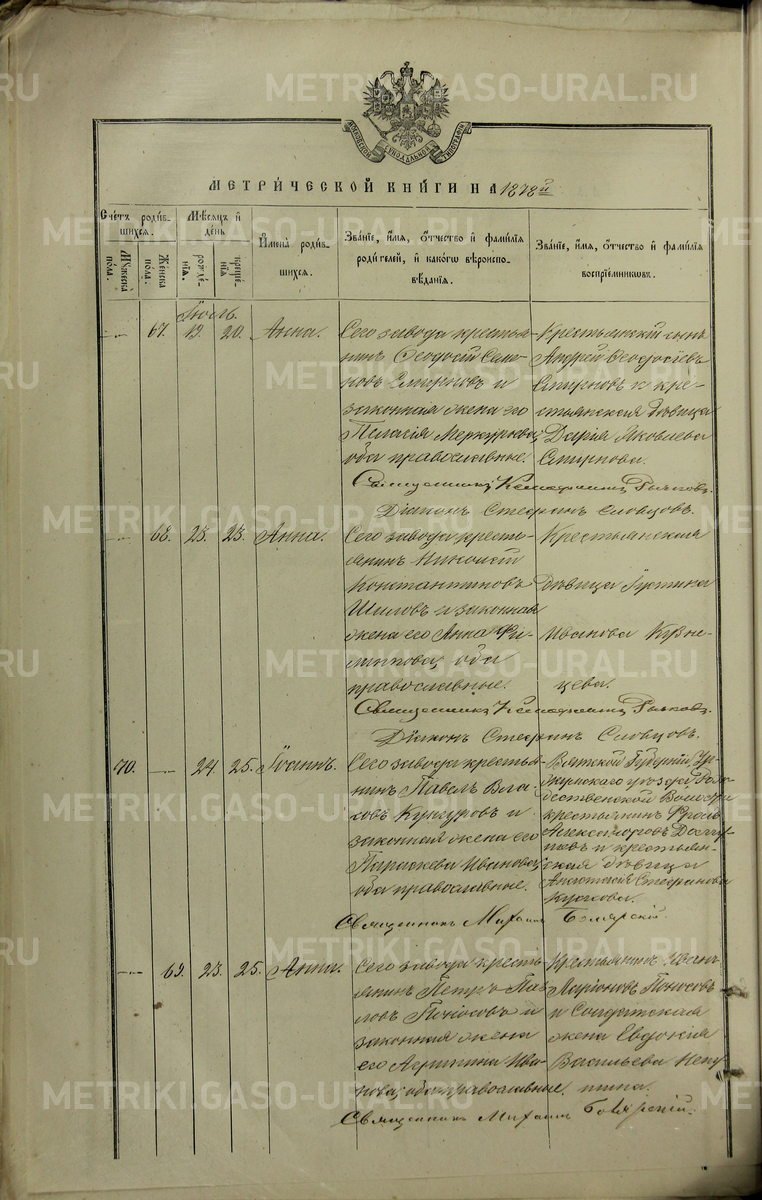 МОСКОВСКОЙ СѴНОДАЛЬНОЙ ТИПОГРАФІИ
МЕТРИ́ЧЕСКОЙ КНИ́ГИ НА 1878й
Сче́тъ роди́в-
шихся.
Му́жеска по́ла.
Же́нска по́ла.
Мѣ́сяцъ и҆ де́нь
рожде́нїя.
креще́нїя
И҆мена̀ роди́в-
шихся.
Зва́нїе, и҆́мя, ѻ҆́тчество и҆ фами́лїя
роди́телей, и҆ како́гѡ вѣроиспо-
вѣ́данїя.
Зва́нїе, и҆́мя, ѻ҆́тчество и҆ фами́лїя
воспрїе́мниковъ.
Іюль.
67. 19. 20. Анна.
Сего завода крестья-
нинъ Ѳеодосій Семе-
новъ Смирновъ и
законная жена его
Пелагія Меркурьева,
оба православные.
Крестьянскій сынъ
Андрей Ѳеодосіевъ
Смирновъ и кре-
стьянская дѣвица
Дарія Яковлева
Смирнова.
Священникъ Рычковъ.
Діаконъ Стефанъ Словцовъ.
68. 23. 23. Анна.
Сего завода кресть-
янинъ Николай
Константиновъ
Шиловъ и законная
жена его Анна Фи-
липпова, оба
православные.
Крестьянская
дѣвица Іустина
Иванова Кузне-
цева.
Священникъ Рычковъ.
Діаконъ Стефанъ Словцовъ.
70. 24. 25. Іоаннъ.
Сего завода крестья-
нинъ Павелъ Вла-
совъ Кунгуровъ и
законная жена его
Параскева Иванова,
оба православные.
Вятской Губерніи, Ур-
жумскаго уѣзда, Рож-
дественской Волости
крестьянинъ Фролъ
Александровъ
и крестьян-
ская дѣвица
Анастасія Стефанова
Священникъ Михаилъ Боярскій.
69. 23. 25. Анна.
Сего завода кресть-
янинъ Петръ Пав-
ловъ Поносовъ и
законная жена
его Агриппина Ива-
нова, оба православные.
Крестьянинъ Иванъ
Ларіоновъ Поносовъ
и Солдатская
жена Евдокія
Васильева Непу-
тина.
Священникъ Михаилъ Боярскій.
METRIKI.GASO-URAL.RU